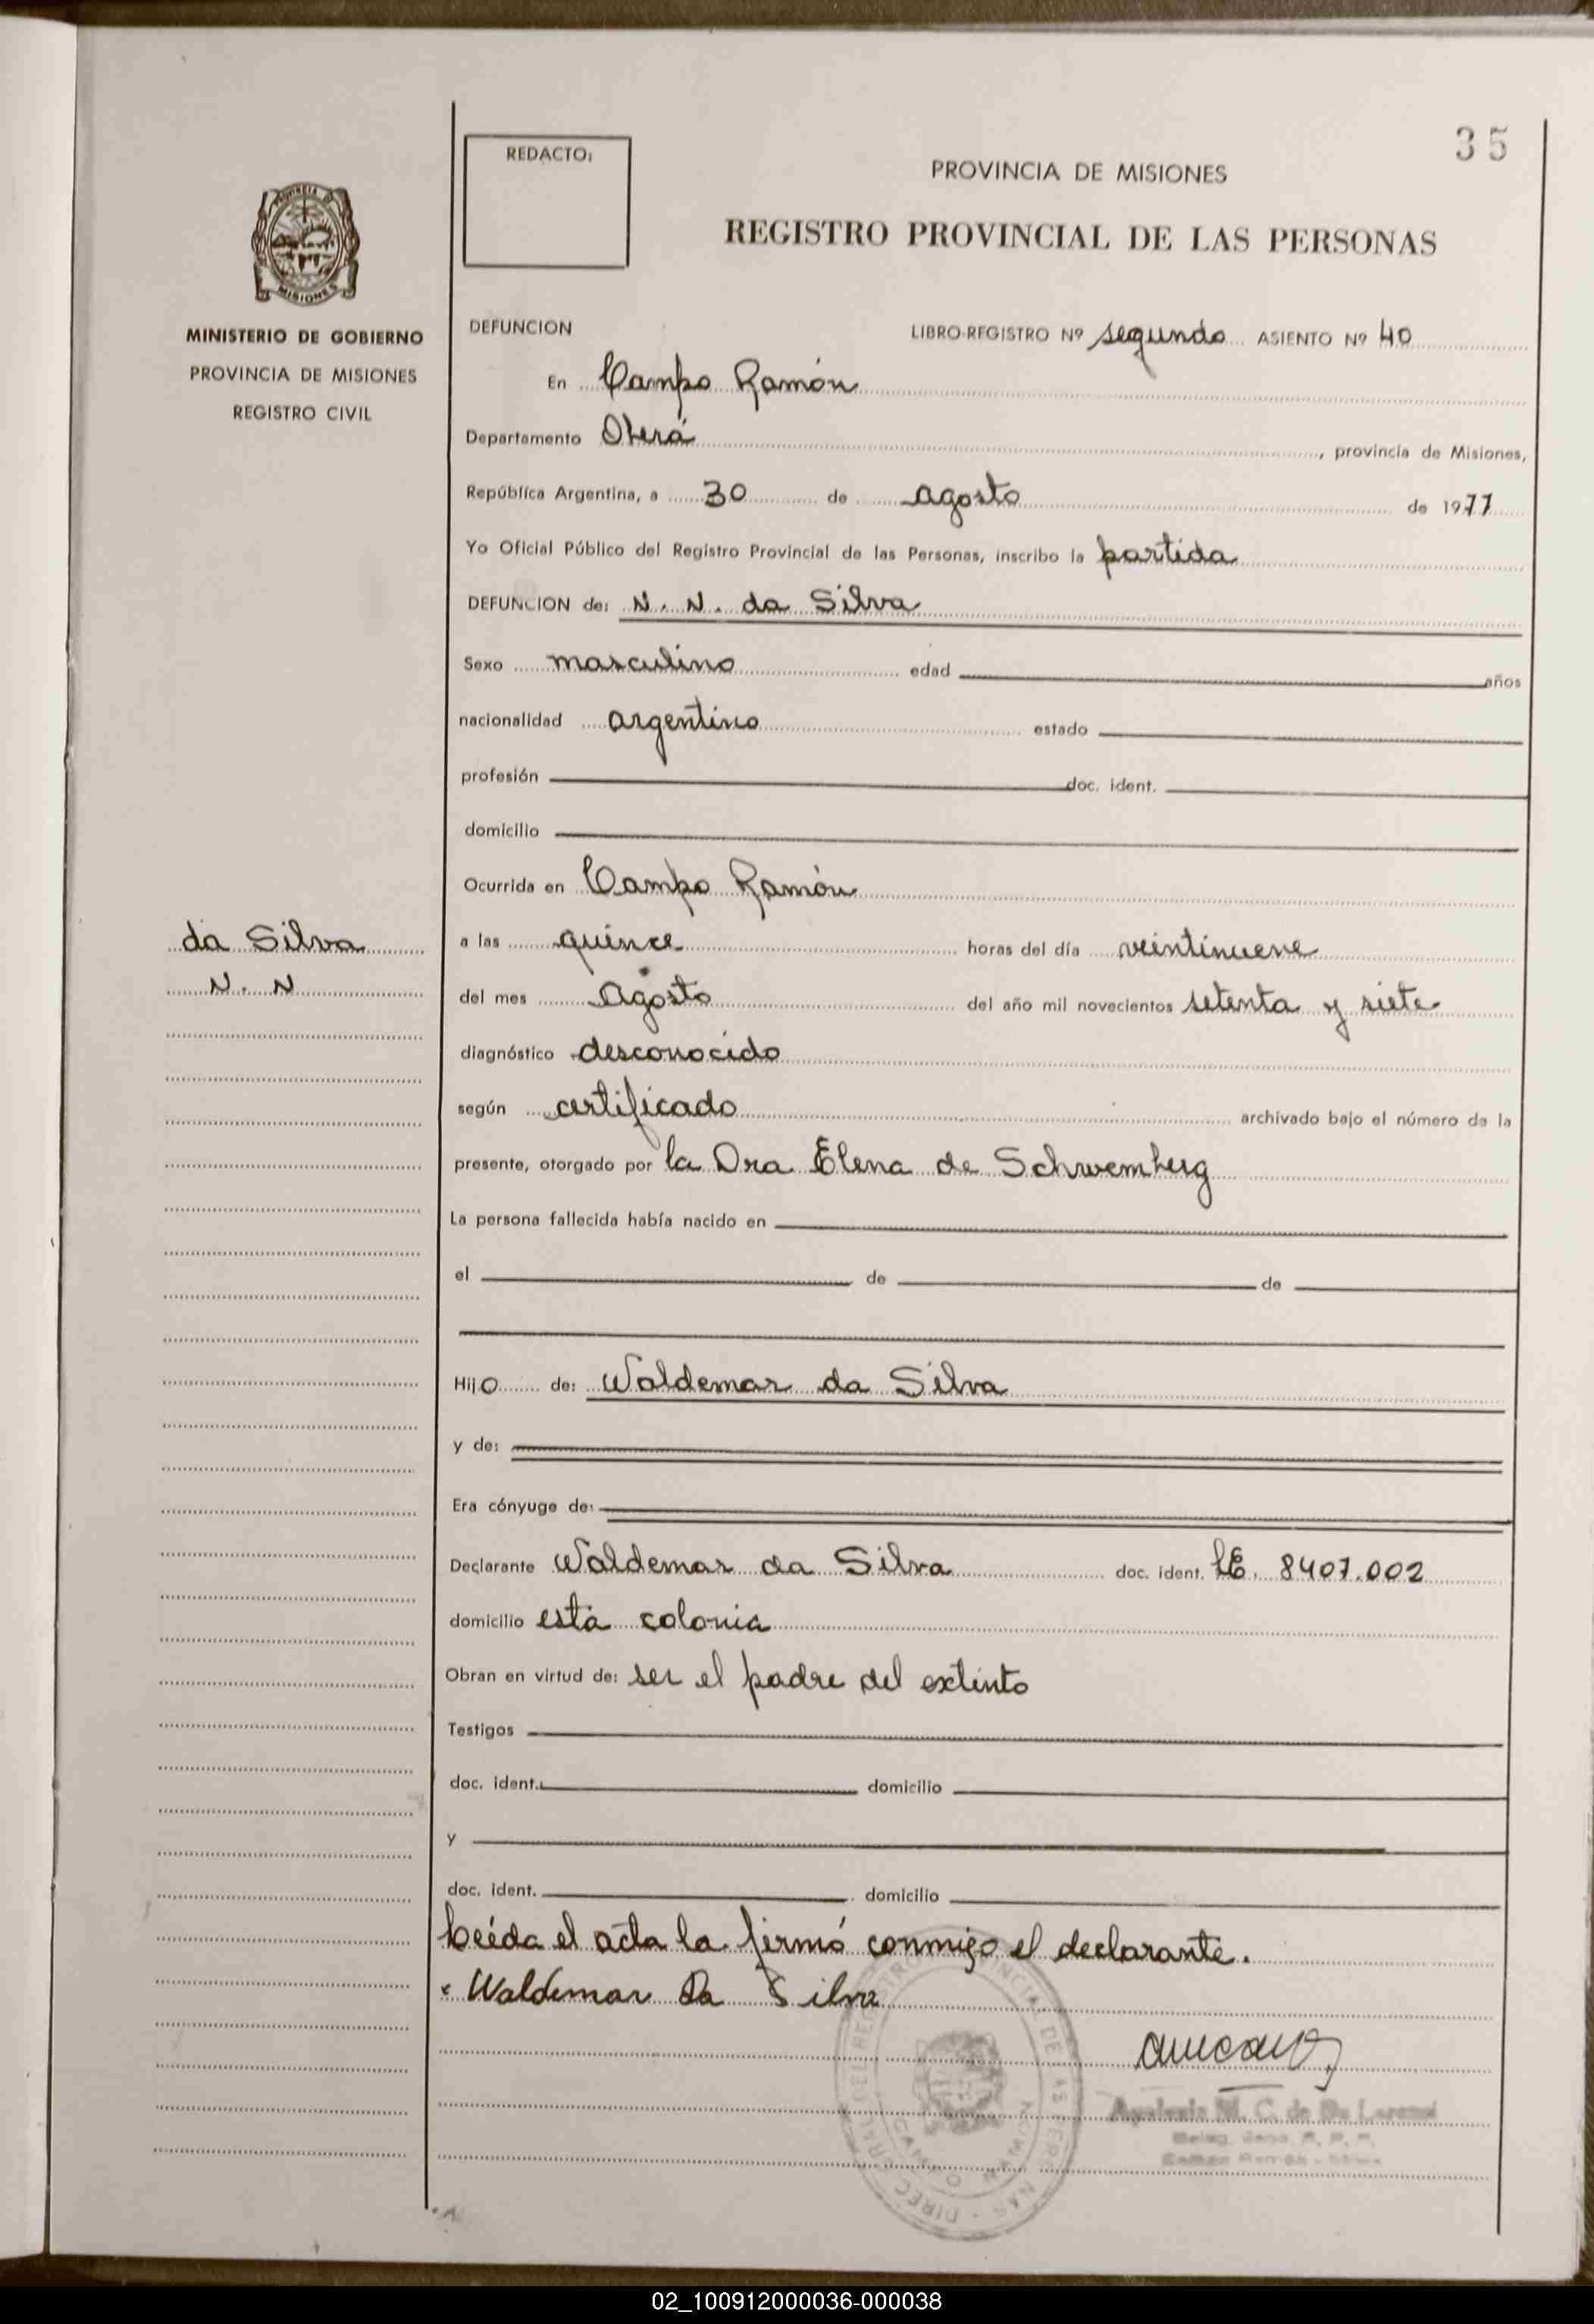 35
REDACTO:
PROVINCIA DE MISIONES
REGISTRO PROVINCIAL DE LAS PERSONAS
MISIONES
MINISTERIO DE GOBIERNO
PROVINCIA DE MISIONES
REGISTRO CIVIL
DEFUNCION LIBRO-REGISTRO Nº segundo ASIENTO Nº 40
En Campo Ramón
Departamento Oberá, provincia de Misiones,
República Argentina, a 30 de agosto de 1977
Yo Oficial Público del Registro Provincial de las Personas, inscribo la partida
DEFUNCION de: N. N. da Silva
Sexo masculino edad años
nacionalidad argentino estado
profesión doc. ident.
domicilio
Ocurrida en Campo Ramón
da Silva
N. N
a las quince horas del día veintinueve
del mes Agosto del año mil novecientos setenta y siete
diagnóstico desconocido
según certificado archivado bajo el número de la
presente, otorgado por la Dra Elena de Schwemberg
La persona fallecida había nacido en
el de de
Hijo de: Waldemar da Silva
y de:
Era cónyuge de:
Declarante Waldemar da Silva doc. ident. LE. 8407.002
domicilio esta colonia
Obran en virtud de: ser el padre del extinto
Testigos
doc. ident. domicilio
y
doc. ident. domicilio
Leída el acta la firmó conmigo el declarante.
Waldemar Da Silva
M. C. de De Lorenzi
CAMPO RAMON
02_100912000036-000038